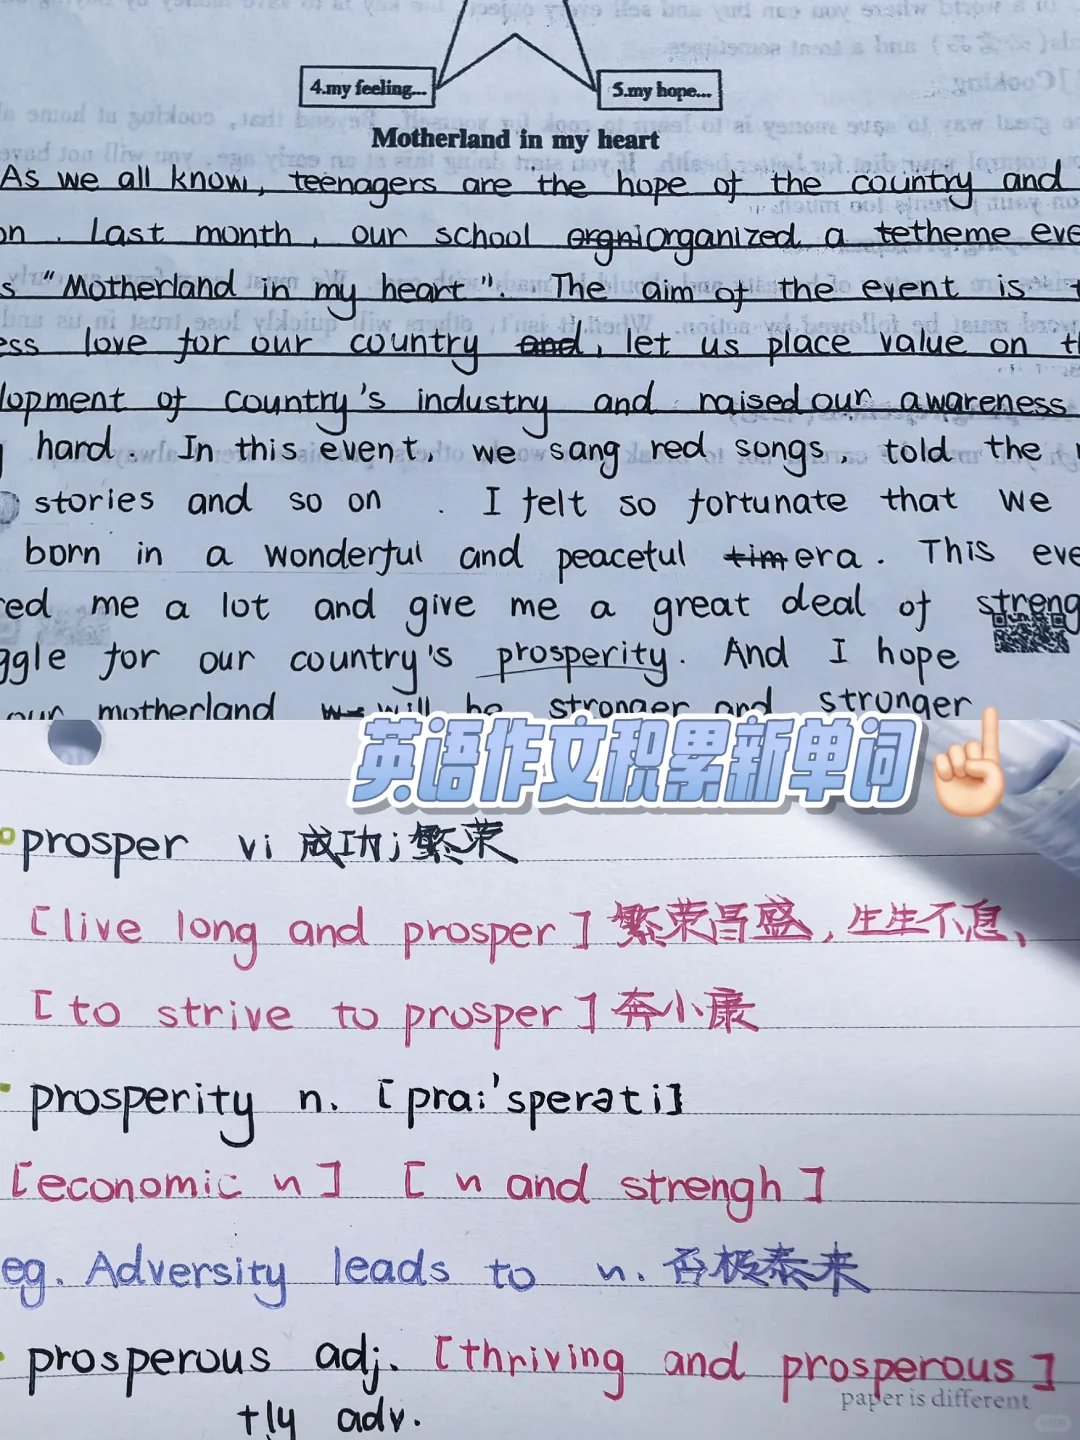 4.my feeling...
5.my hope...
Motherland in my heart
As we all know, teenagers are the hope of the country and
on. Last month, our school orgni organized a te theme eve
s "Motherland in my heart". The aim of the event is t
ess love for our country and, let us place value on th
lopment of country's industry and raised our awareness
hard. In this event, we sang red songs, told the r
stories and so on. I felt so fortunate that we
born in a wonderful and peaceful tim era. This eve
red me a lot and give me a great deal of streng
ggle for our country's prosperity. And I hope
our motherland we will be stronger and stronger
英语作文积累新单词
prosper vi 成功;繁荣
[live long and prosper] 繁荣昌盛,生生不息、
[to strive to prosper] 奔小康
prosperity n. [pra:'sperəti]
[economic n] [n and strengh]
eg. Adversity leads to n. 否极泰来
prosperous adj. [thriving and prosperous]
+ly adv.
paper is different